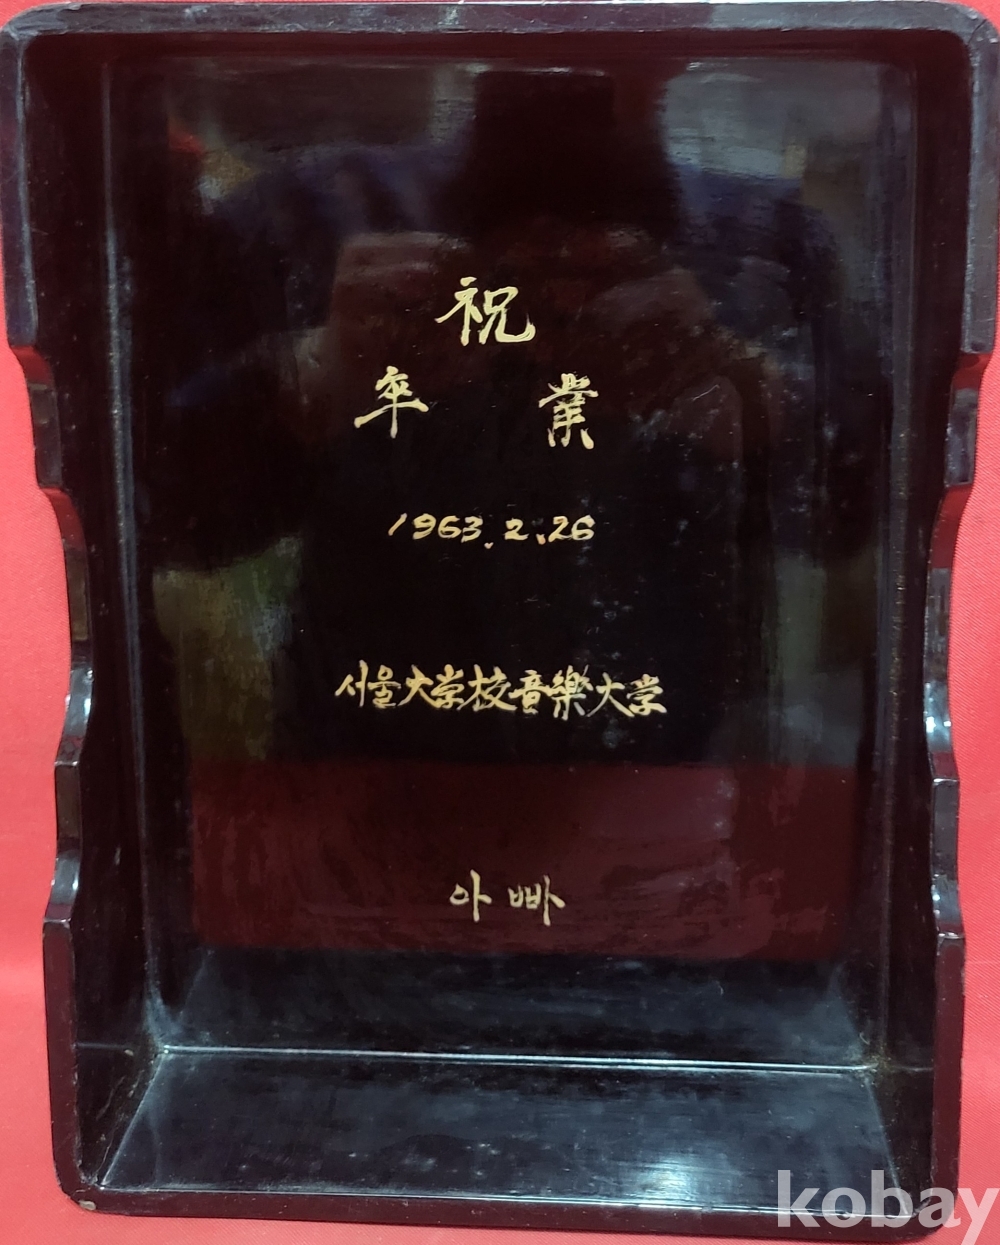 祝
卒 業
1963.2.26
서울大学校音樂大学
아빠
kobay